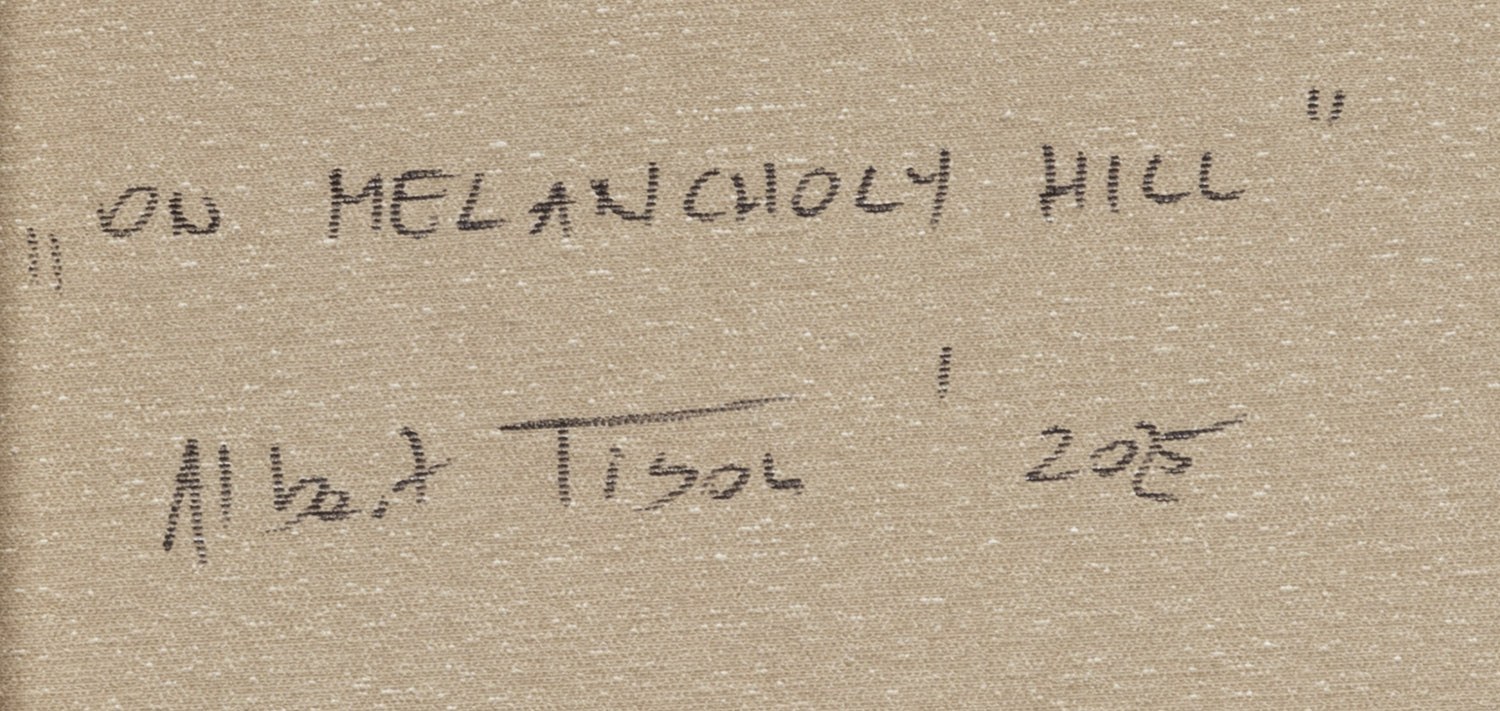 „ON MELANCHOLY HILL"
Albert Tisol ' 205